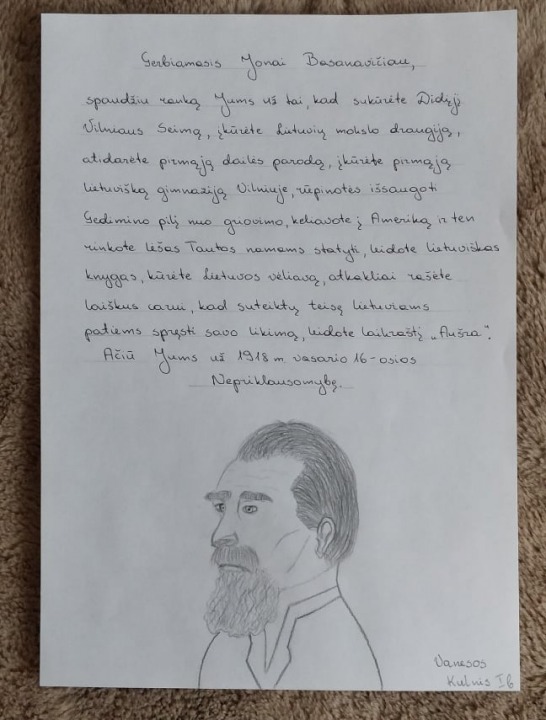 Gerbiamasis Jonai Basanavičiau,
spaudžiu ranką Jums už tai, kad sukūrėte Didįjį
Vilniaus Seimą, įkūrėte Lietuvių mokslo draugiją,
atidarėte pirmąją dailės parodą, įkūrėte pirmąją
lietuvišką gimnaziją Vilniuje, rūpinotės išsaugoti
Gedimino pilį nuo griovimo, keliavote į Ameriką ir ten
rinkote lėšas Tautos namams statyti, leidote lietuviškas
knygas, kūrėte Lietuvos vėliavą, atkakliai rašėte
laiškus carui, kad suteiktų teisę lietuviams
patiems spręsti savo likimą, leidote laikraštį „Aušra".
Ačiū Jums už 1918 m. vasario 16-osios
Nepriklausomybę.
Vanesos
Kulnis I b